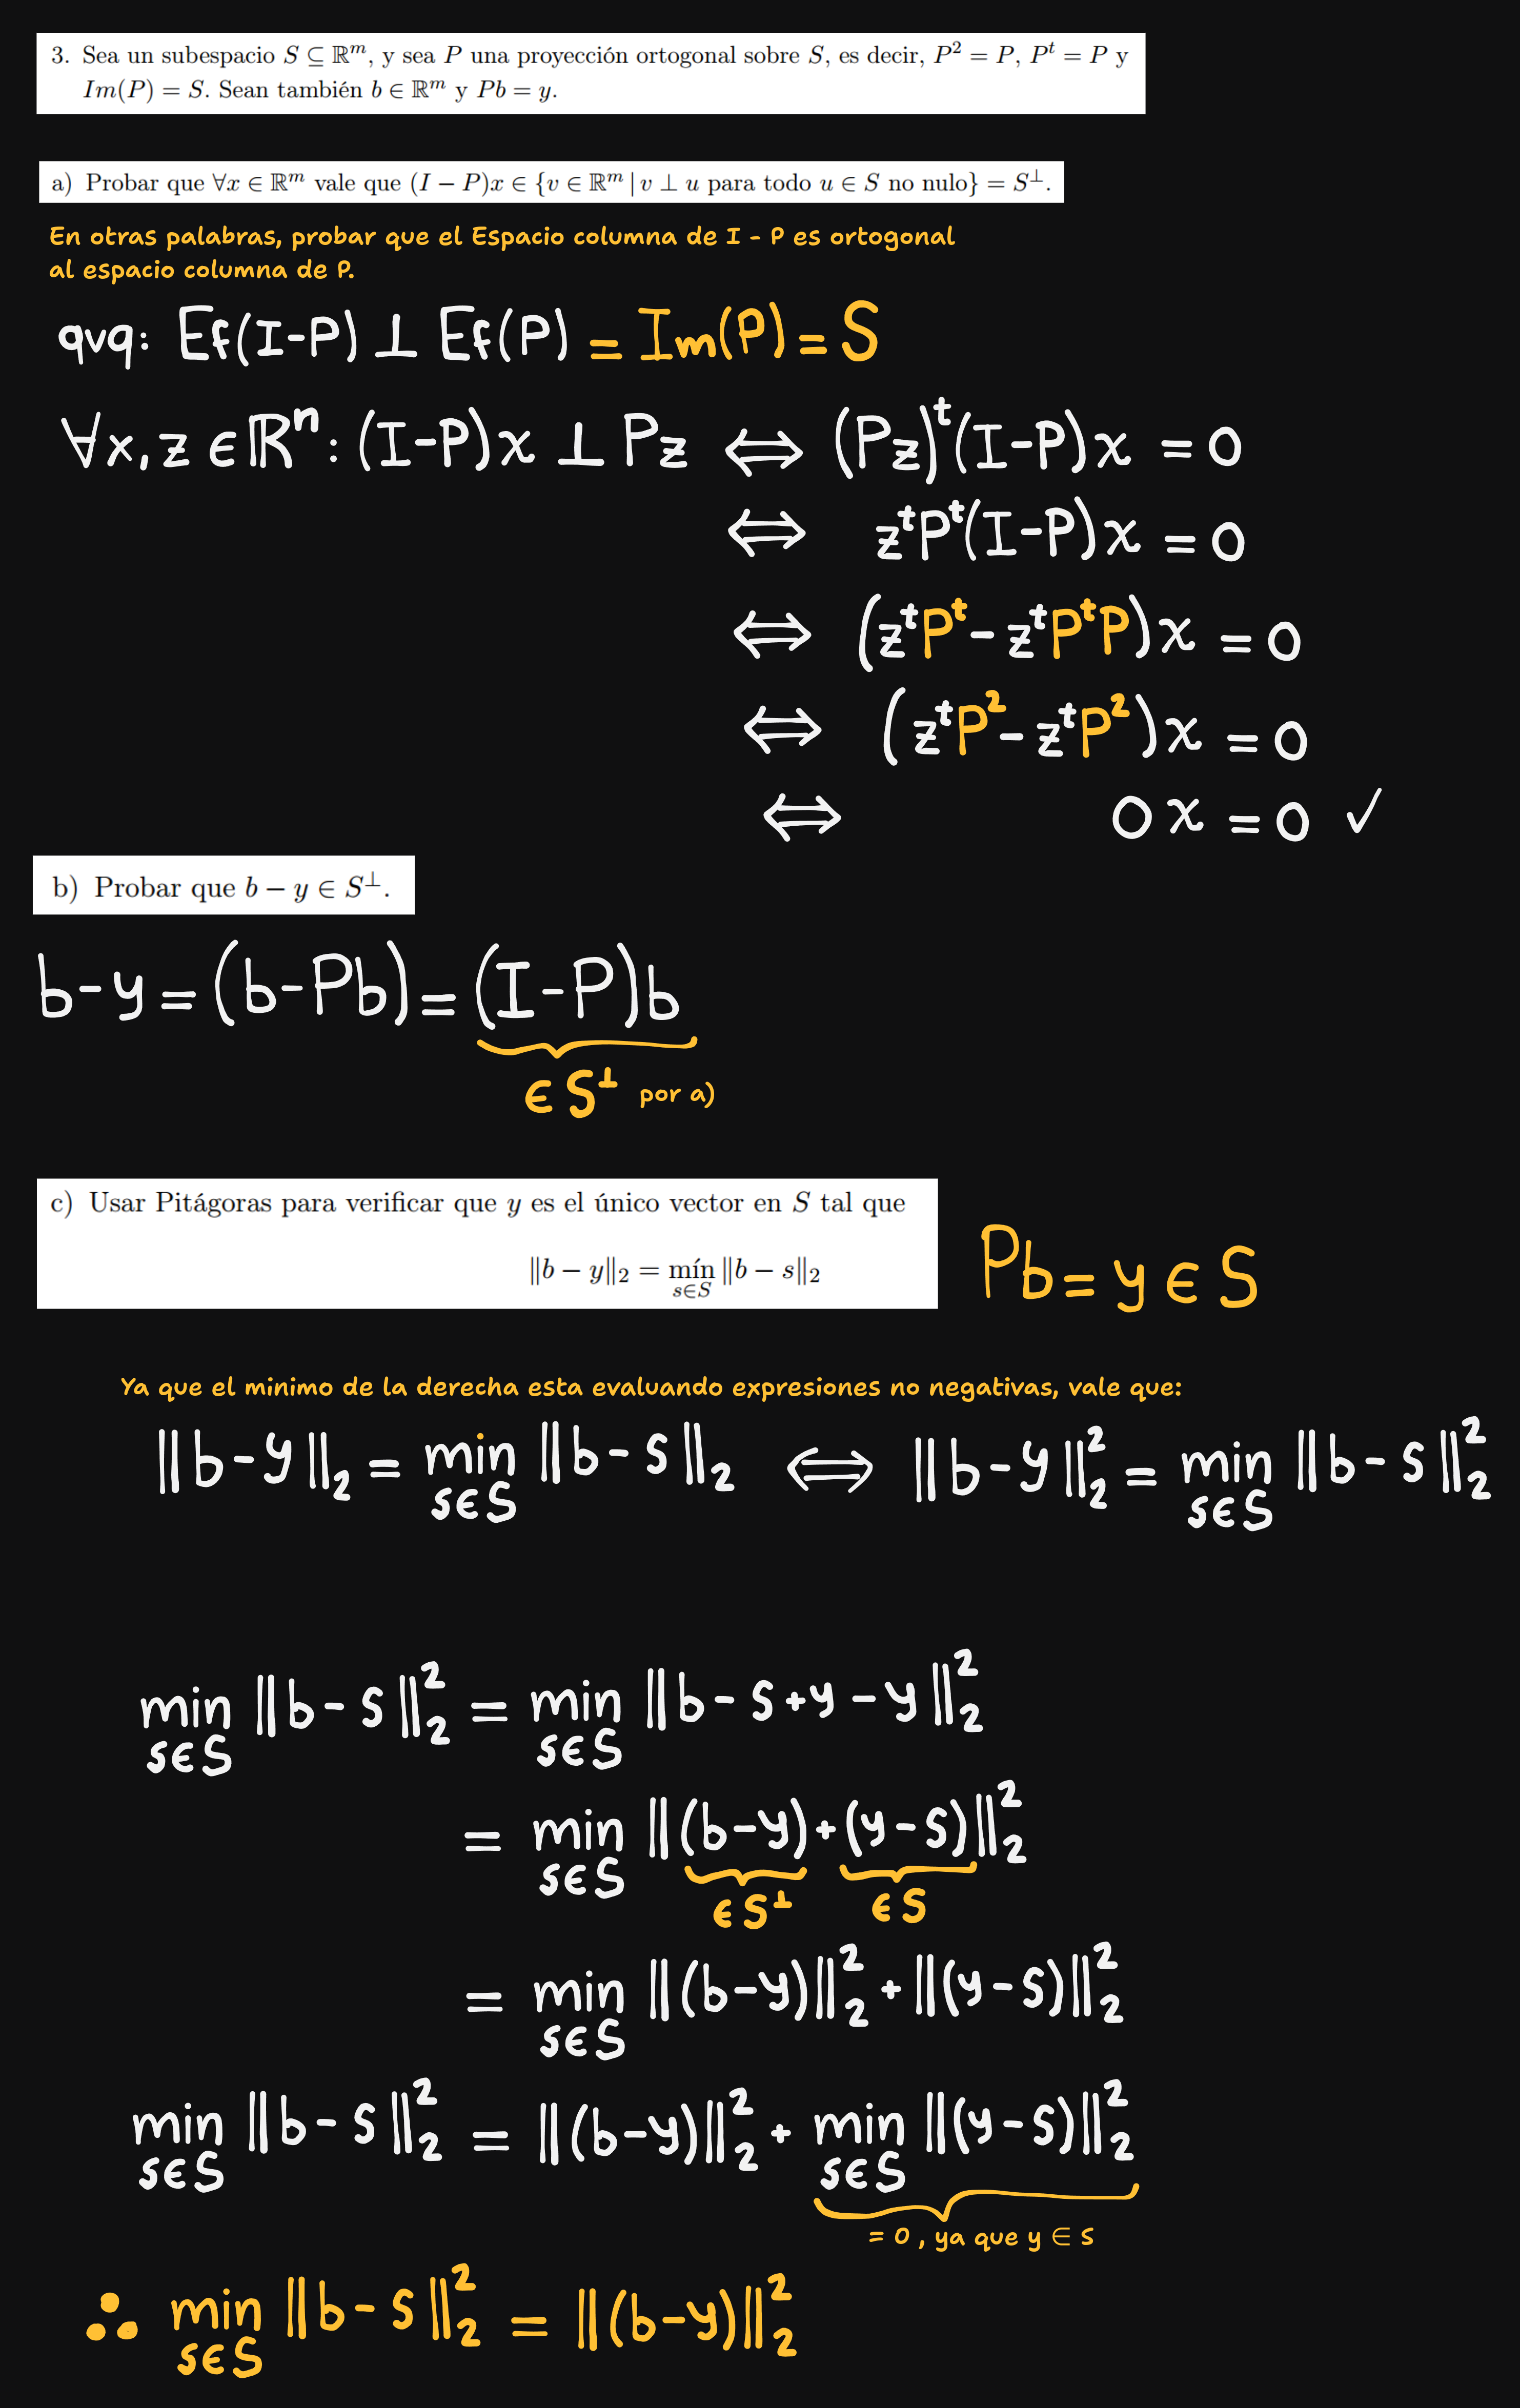 3. Sea un subespacio S ⊆ ℝᵐ, y sea P una proyección ortogonal sobre S, es decir, P² = P, Pᵗ = P y
Im(P) = S. Sean también b ∈ ℝᵐ y Pb = y.
a) Probar que ∀x ∈ ℝᵐ vale que (I − P)x ∈ {v ∈ ℝᵐ | v ⊥ u para todo u ∈ S no nulo} = S^⊥.
En otras palabras, probar que el Espacio columna de I - P es ortogonal
al espacio columna de P.
qvq: Ef(I-P) ⊥ Ef(P) = Im(P) = S
∀x, z ∈ ℝⁿ: (I-P)x ⊥ Pz ⟺ (Pz)ᵗ(I-P)x = 0
⟺ zᵗPᵗ(I-P)x = 0
⟺ (zᵗPᵗ - zᵗPᵗP)x = 0
⟺ (zᵗP² - zᵗP²)x = 0
⟺ 0x = 0 ✓
b) Probar que b − y ∈ S^⊥.
b-y = (b-Pb) = (I-P)b
∈ S^⊥ por a)
c) Usar Pitágoras para verificar que y es el único vector en S tal que
‖b − y‖₂ = mín ‖b − s‖₂
s∈S
Pb = y ∈ S
Ya que el minimo de la derecha esta evaluando expresiones no negativas, vale que:
‖b-y‖₂ = min ‖b-s‖₂ ⟺ ‖b-y‖₂² = min ‖b-s‖₂²
s∈S s∈S
min ‖b-s‖₂² = min ‖b-s+y-y‖₂²
s∈S s∈S
= min ‖(b-y)+(y-s)‖₂²
s∈S ∈ S^⊥ ∈ S
= min ‖(b-y)‖₂² + ‖(y-s)‖₂²
s∈S
min ‖b-s‖₂² = ‖(b-y)‖₂² + min ‖(y-s)‖₂²
s∈S s∈S
= 0, ya que y ∈ s
∴ min ‖b-s‖₂² = ‖(b-y)‖₂²
s∈S